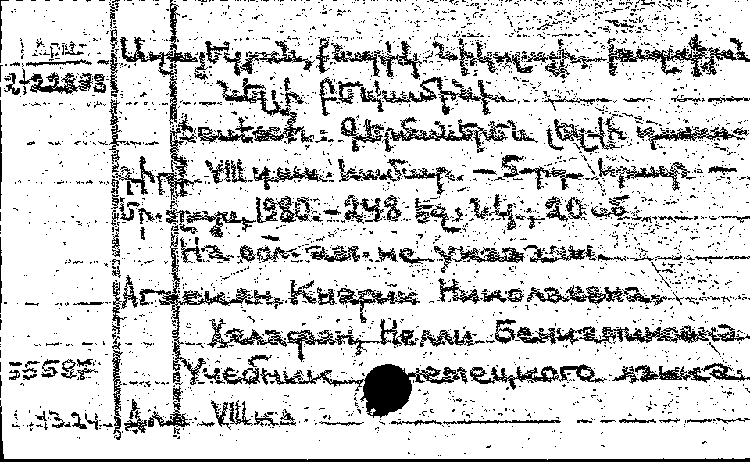 Арм.
2-22893
Աղաբեկյան, Քնարիկ Նիկոլայի,
Նելլի Բենիամինի.
Deutsch: Գերմաներեն լեզվի դասա-
գիրք VIII դաս. համար. – 5-րդ հրատ. –
Եր.: 1980. – 248 էջ, նկ.; 20 սմ.
На обл. авт. не указаны.
Агавелян, Кнарик Николаевна,
Халафян, Нелли Бениаминовна
Учебник немецкого языка.
55587
Для VIII кл.